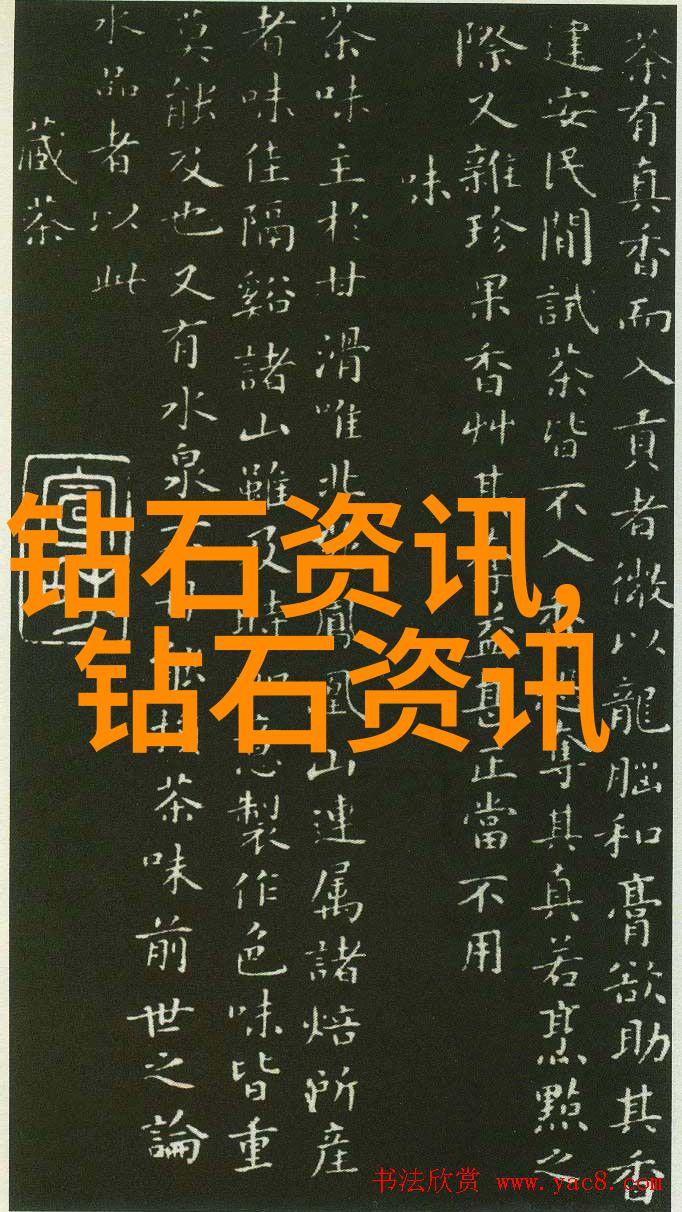 茶有真香而入貢者微以龍腦和膏欲助其香
建安民間試茶皆不入香奪其真若烹點之
際又雜珍果香艸其奪益甚正當不用
味
茶味主於甘滑唯北鳳凰山連属諸焙所産
者味佳隔谿諸山雖及時意製作色味皆重
莫能及也又有水泉茶味前世之論
水品者以此
藏茶
钻石资讯,
钻石资讯
书法欣赏 www.yac8.com